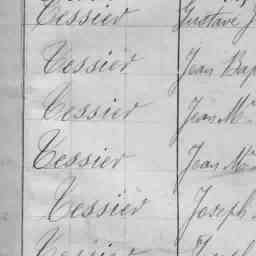 Tessier Gustave J
Tessier Jean Bap
Tessier Jean M
Tessier Jean M
Tessier Joseph
Tessier